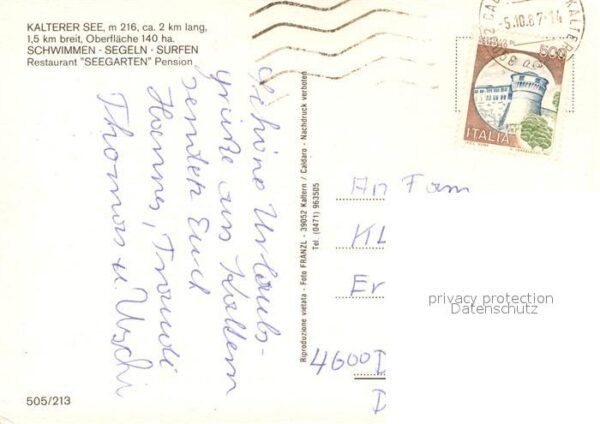 KALTERER SEE, m 216, ca. 2 km lang,
1,5 km breit, Oberfläche 140 ha.
SCHWIMMEN · SEGELN · SURFEN
Restaurant "SEEGARTEN" Pension
Schöne Urlaubs-
grüße aus Kaltern
sendet Euch
Hannes, Traudi
Thomas u. Uschi
505/213
Riproduzione vietata - Foto FRANZL - 39052 Kaltern / Caldaro - Nachdruck verboten
Tel. (0471) 963505
-5.10.87-14
500
ITALIA
An Fam
KL
Er
4600
privacy protection
Datenschutz